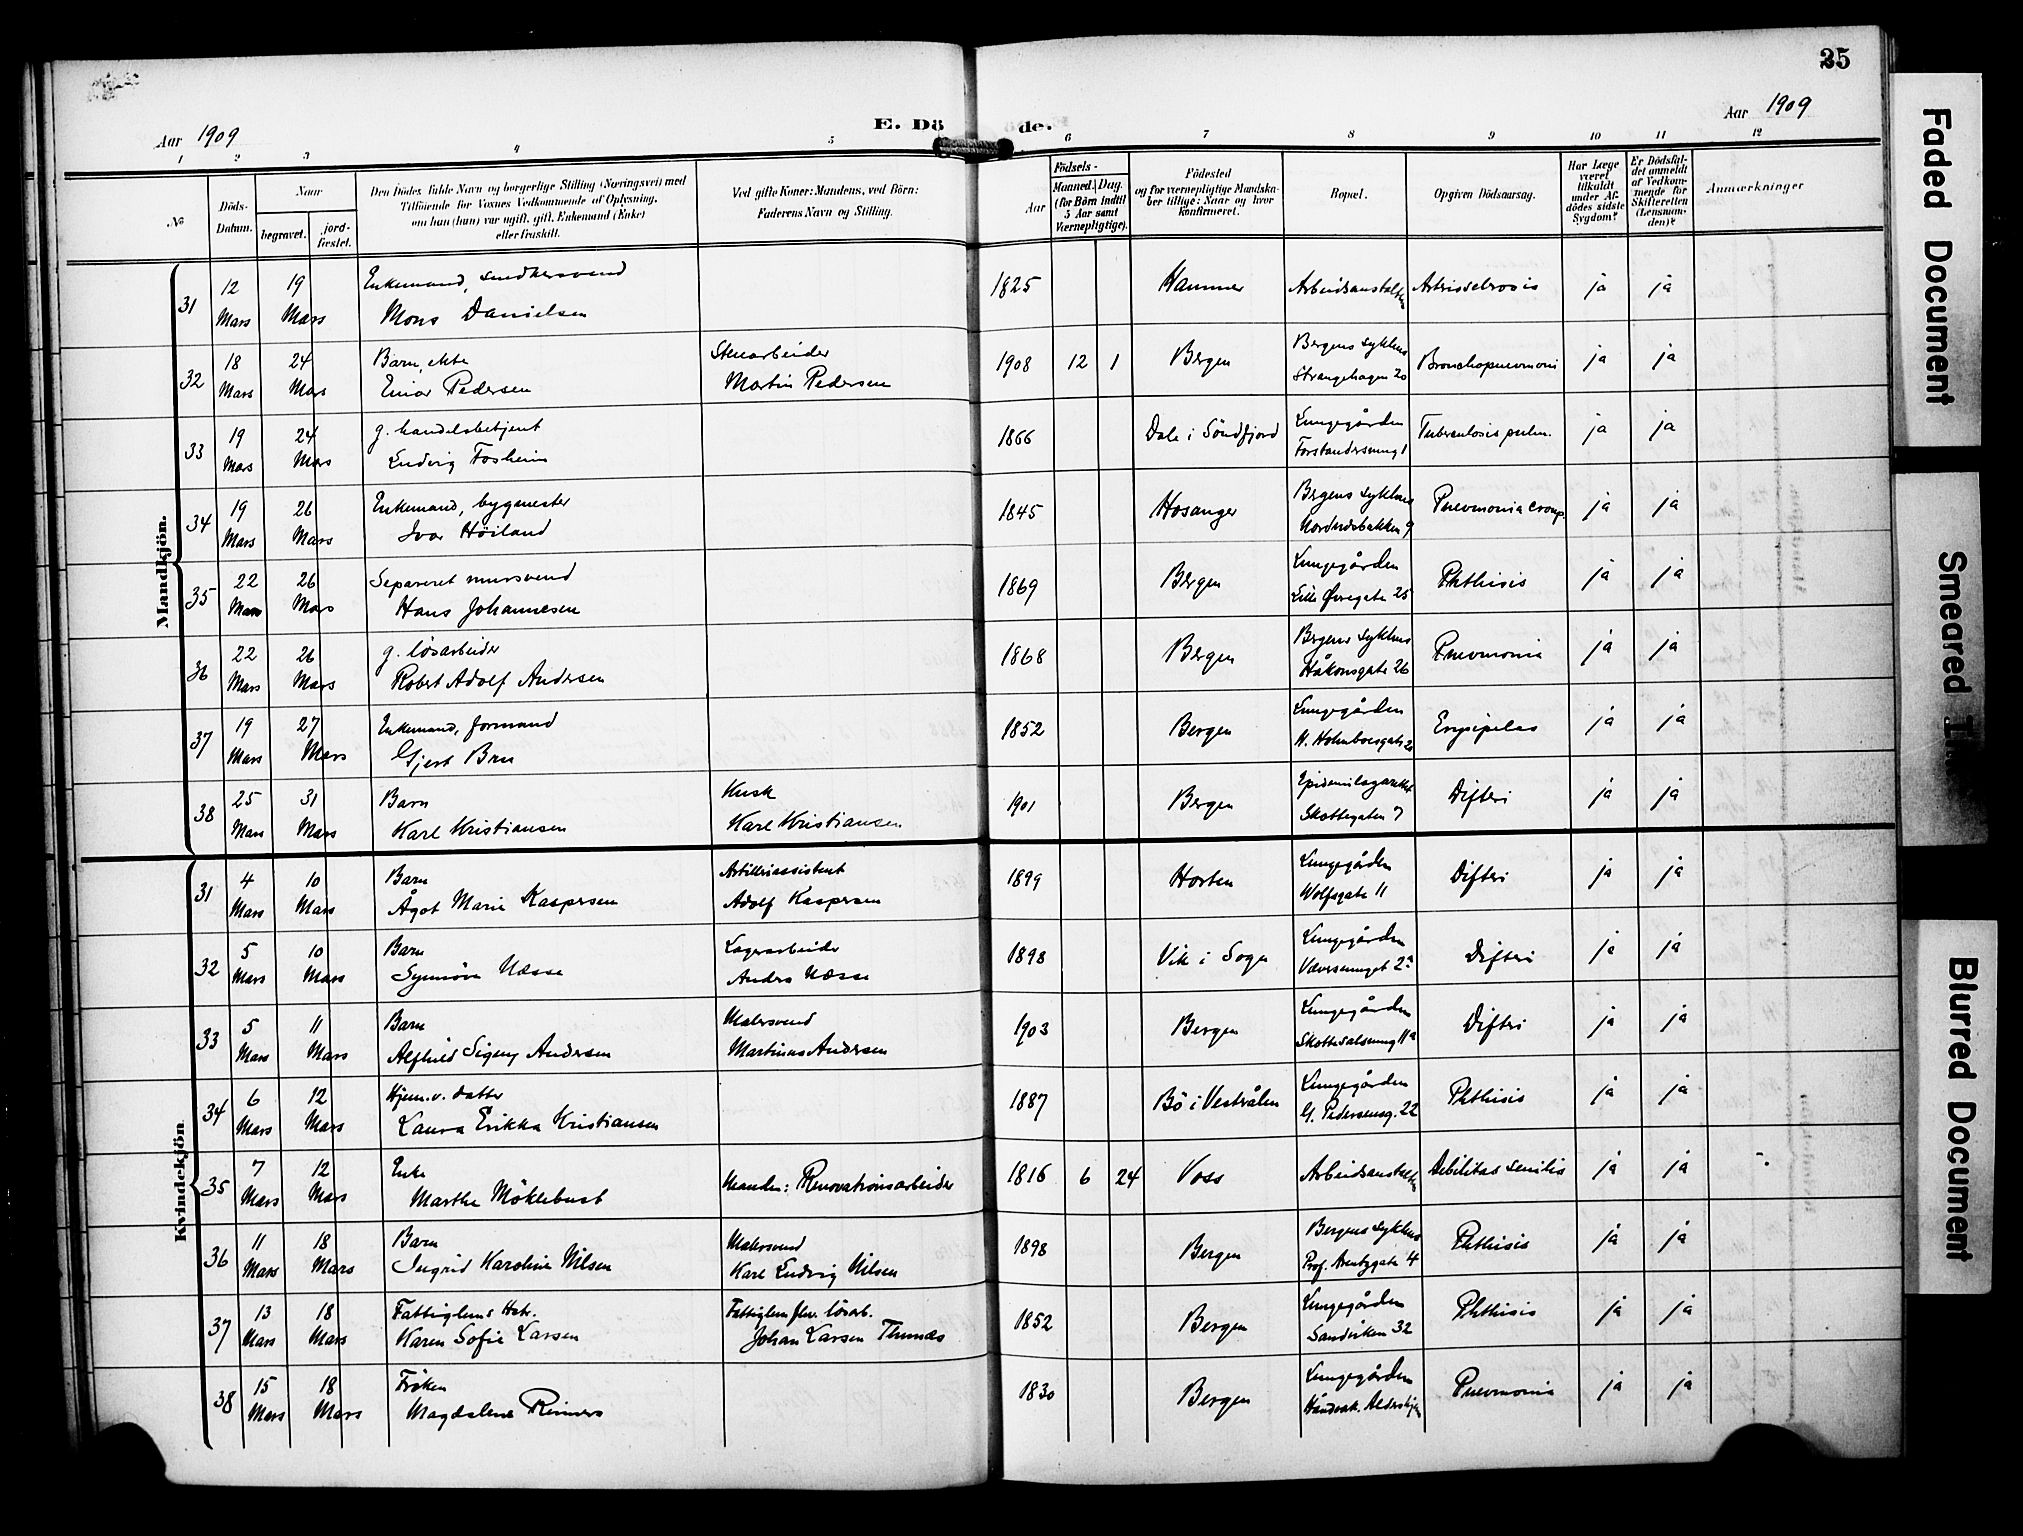 35
Aar 1909
E. Döde.
Aar 1909
1 2 3 4 5 6 7 8 9 10 11 12
№
Döds-Datum.
Naar
begravet.
jord-fæstet.
Den Dödes fulde Navn og borgerlige Stilling (Næringsvei) med
Tilföiende for Voxnes Vedkommende af Oplysning,
om han (hun) var ugift, gift, Enkemand (Enke)
eller fraskilt.
Ved gifte Koner: Mandens, ved Börn:
Faderens Navn og Stilling.
Födsels-
Aar
Maaned. Dag.
(for Börn indtil
5 Aar samt
Værnepligtige).
Födested
og for værnepligtige Mandska-
ber tillige: Naar og hvor
konfirmeret.
Bopæl.
Opgiven Dödsaarsag.
Har Læge
været
tilkaldt
under Af-
dödes sidste
Sygdom?
Er Dödsfal-
det anmeldt
af Vedkom-
mende for
Skifteretten
(Lensman-
den)?
Anmærkninger
Mandkjön.
31 12 Mars 19 Mars Enkemand, smedkersvend
Mons Danielsen 1825 Hammer Arbeidsanstalten Artriosclrosis ja ja
32 18 Mars 24 Mars Barn, ekte
Einar Pedersen Stenarbeider
Martin Pedersen 1908 12 1 Bergen Bergens sykhus
Strangehagen 20 Bronchopneumoni ja ja
33 19 Mars 24 Mars g. handelsbetjent
Ludvig Fosheim 1866 Dale i Söndfjord Lungegården
Forstandersmug 1 Tuberculosis pulm. ja ja
34 19 Mars 26 Mars Enkemand, bygmester
Ivar Höiland 1845 Hosanger Bergens sykhus
Nordnesbakken 9 Pneumonia croup. ja ja
35 22 Mars 26 Mars Separeret mursvend
Hans Johannesen 1869 Bergen Lungegården
Lille Øvregate 25 Phthisis ja ja
36 22 Mars 26 Mars g. lösarbeider
Robert Adolf Andersen 1868 Bergen Bergens sykhus
Håkonsgate 26 Pneumonia ja ja
37 19 Mars 27 Mars Enkemand, formand
Gjert Bru 1852 Bergen Lungegården
H. Holmboesgate 2 Erysipelas ja ja
38 25 Mars 31 Mars Barn
Karl Kristiansen Kusk
Karl Kristiansen 1901 Bergen Epidemilasarettet
Skottegaten 7 Difteri ja ja
Kvindekjön
31 4 Mars 10 Mars Barn
Ågot Marie Kaspersen Artilleriassistent
Adolf Kaspersen 1899 Horten Lungegården
Wolfsgate 11 Difteri ja ja
32 5 Mars 10 Mars Barn
Synnöve Næsse Lagerarbeider
Anders Næsse 1898 Vik i Sogn Lungegården
Væversmuget 2a Difteri ja ja
33 5 Mars 11 Mars Barn
Alfhild Signy Andersen Malersvend
Martinus Andersen 1903 Bergen Lungegården
Skottesalsmug 11a Difteri ja ja
34 6 Mars 12 Mars Hjem.v. datter
Laura Erikka Kristiansen 1887 Bö i Vestrålen Lungegården
G. Pedersensg. 22 Phthisis ja ja
35 7 Mars 12 Mars Enke
Marthe Möklebust Manden: Renovationsarbeider 1816 6 24 Voss Arbeidsanstalten Debilitas senilis ja ja
36 11 Mars 18 Mars Barn
Ingrid Karoline Nilsen Malersvend
Karl Ludvig Nilsen 1898 Bergen Bergens sykhus
Prof. Arentzgate 4 Phthisis ja ja
37 13 Mars 18 Mars Fattiglems Hstr.
Karen Sofie Larsen Fattiglem fhv. lösarb.
Johan Larsen Thunæs 1852 Bergen Lungegården
Sandviken 32 Phthisis ja ja
38 15 Mars 18 Mars Fröken
Magdalene Reimers 1830 Bergen Lungegården
Håndvek. Aldershjem Pneumonia ja ja
Faded Document
Smeared
Blurred Document